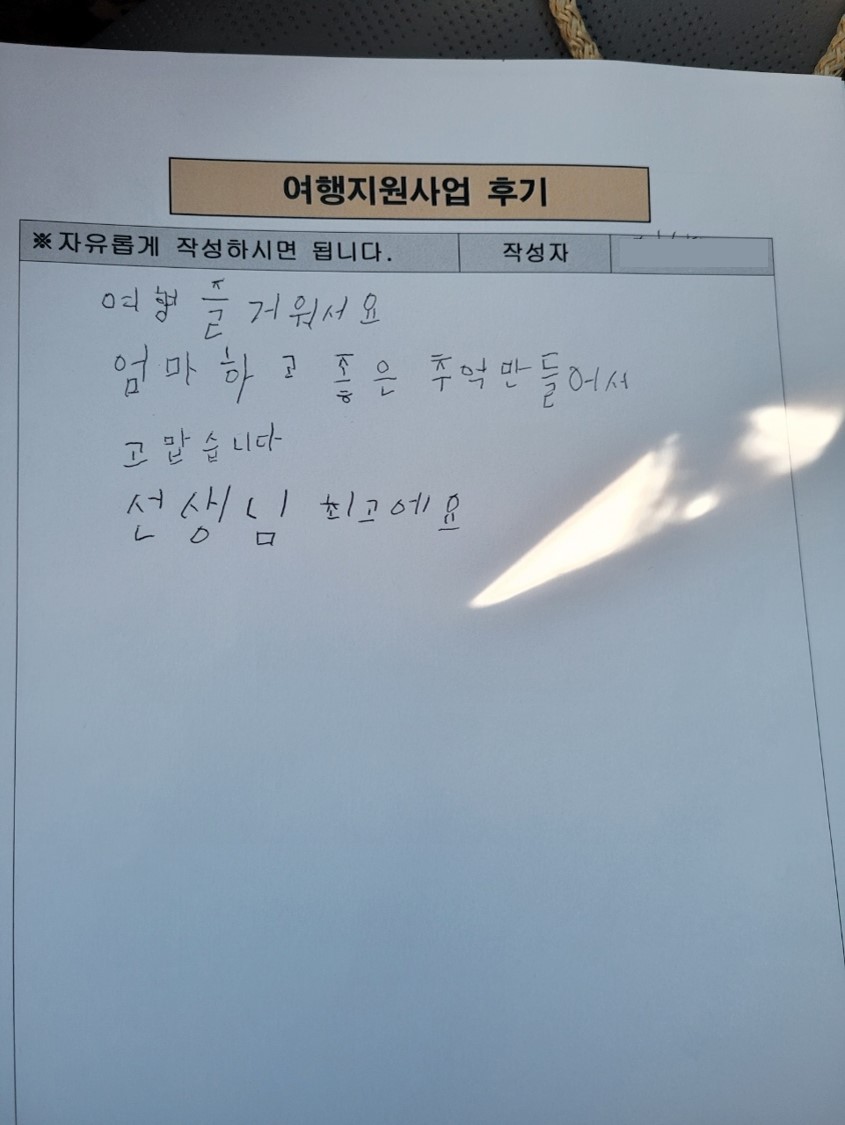 여행지원사업 후기
※자유롭게 작성하시면 됩니다. 작성자
여행 즐거워서요
엄마하고 좋은 추억만들어서
고맙습니다
선생님 최고에요